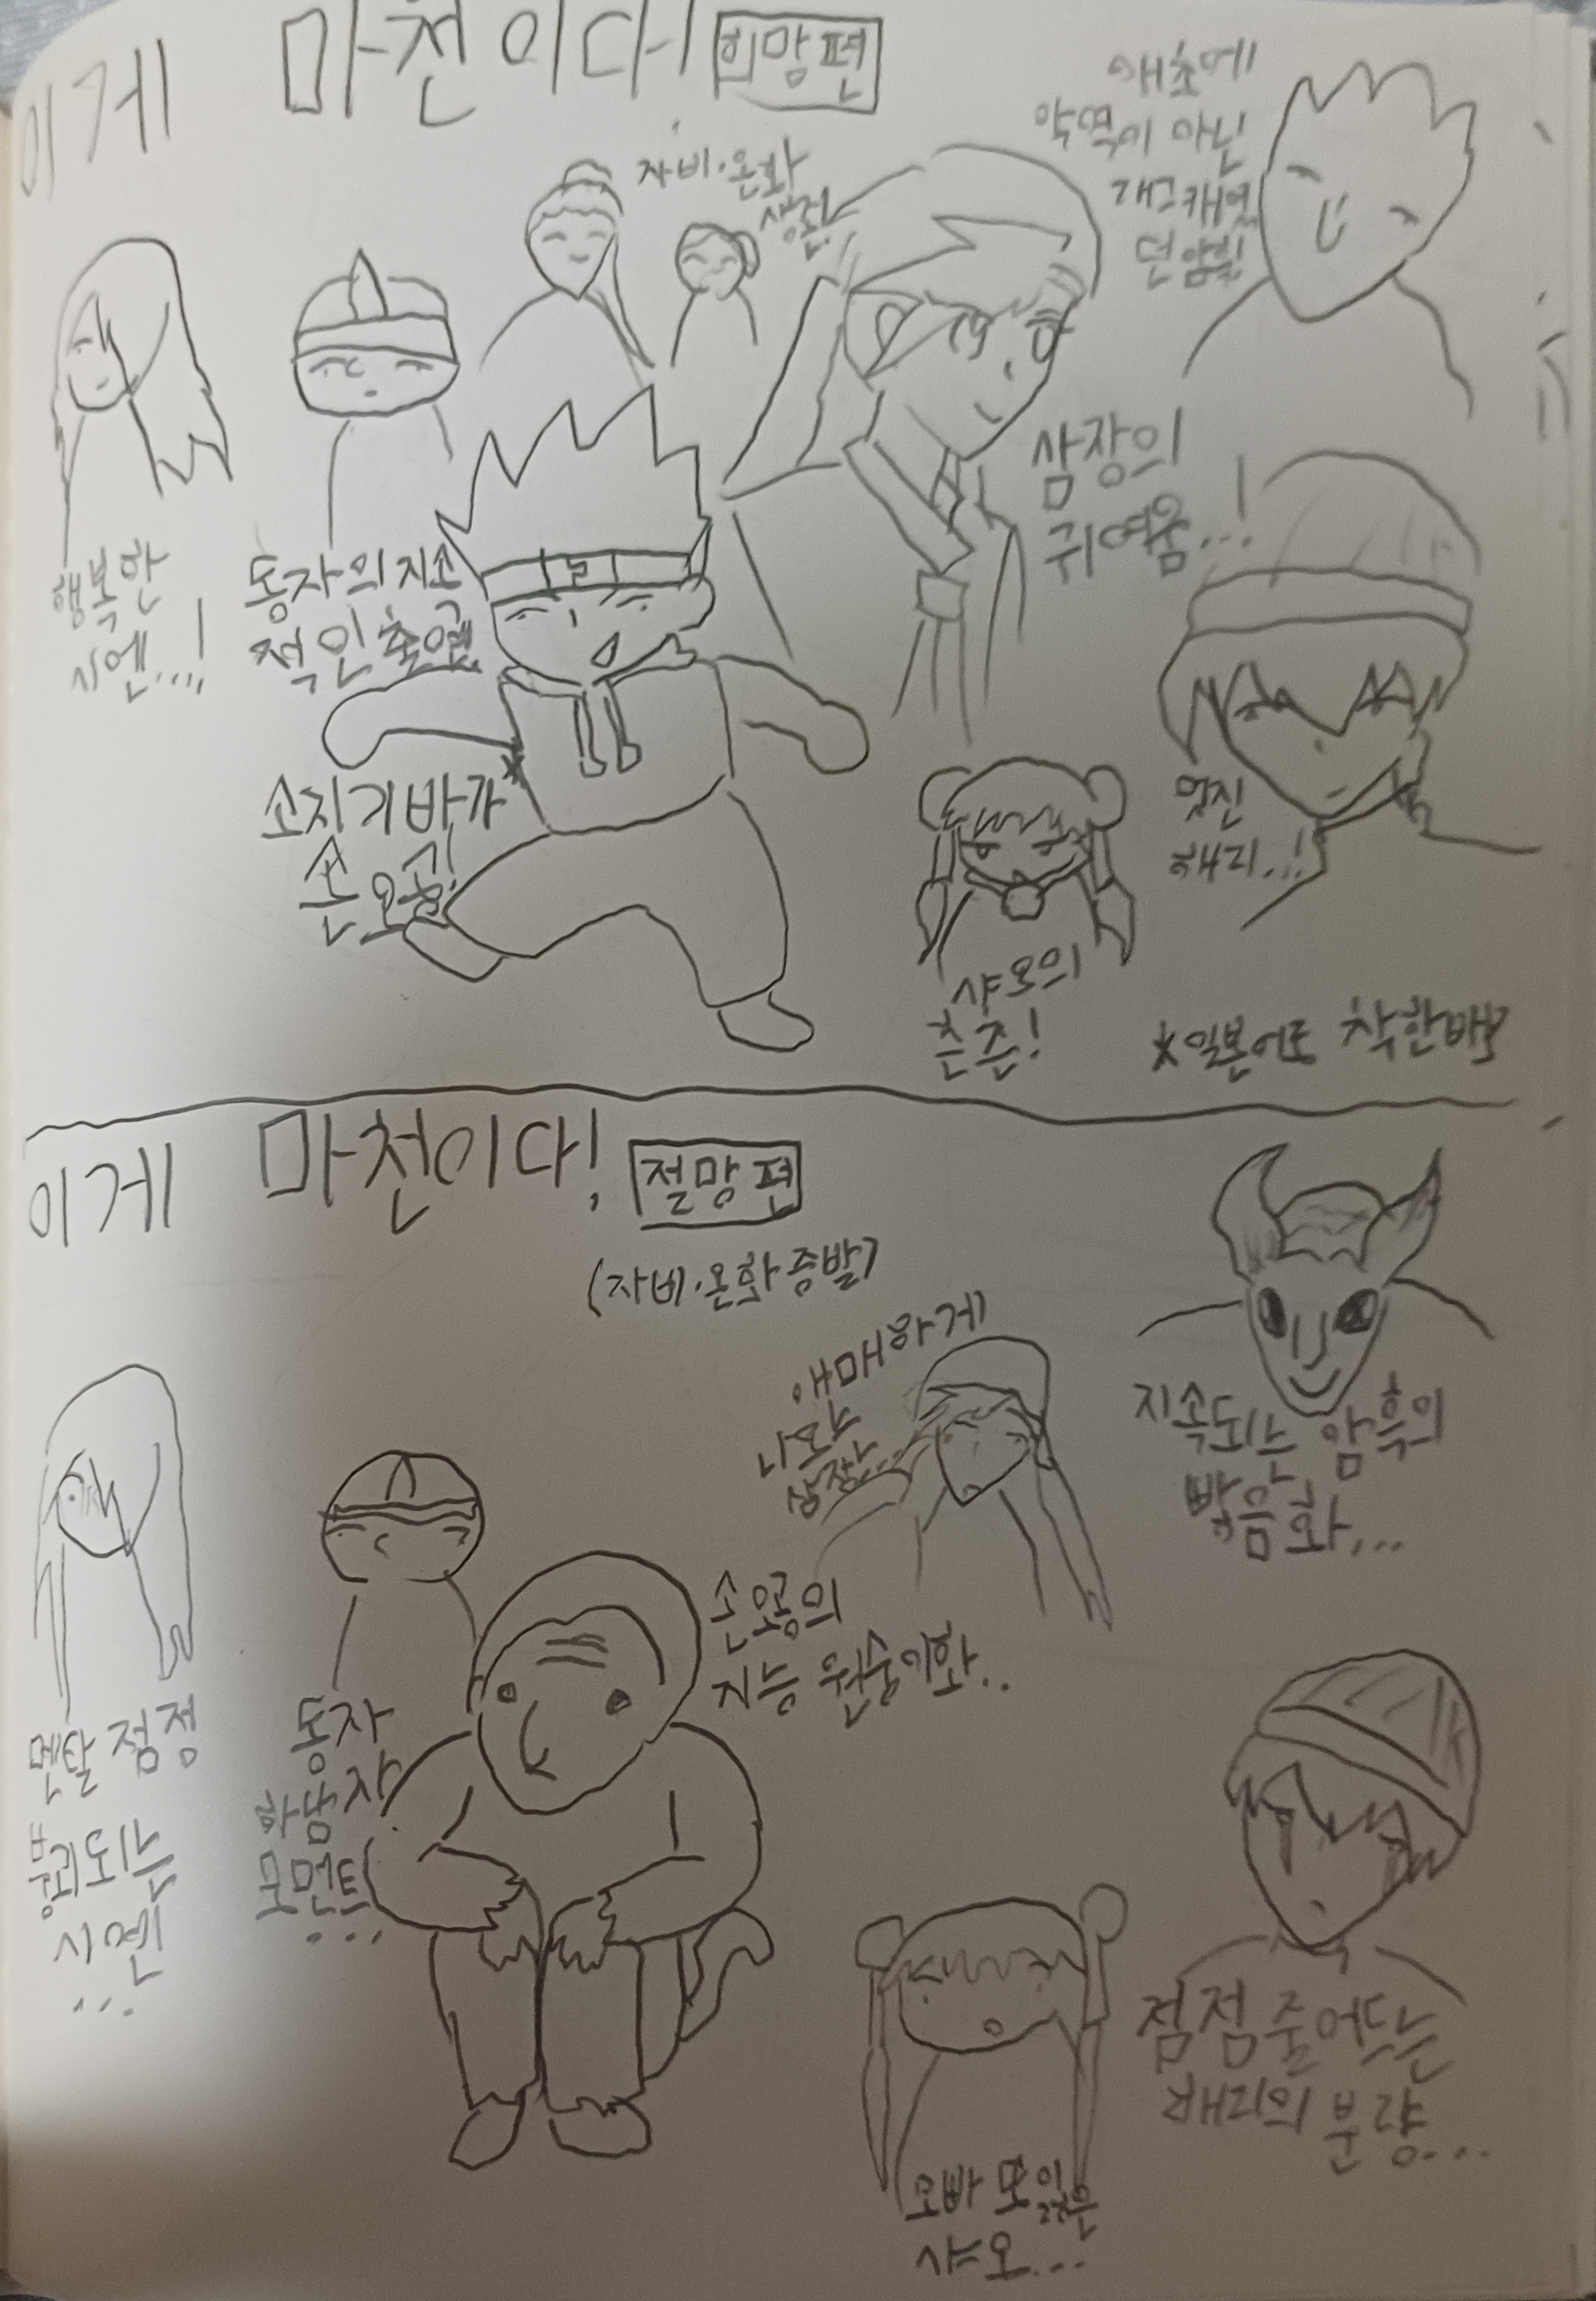 이게 마천이다! 희망편
애초에
악역이 아닌
개그캐였
던 암흑!
자비·온화
생존!
행복한
시엔...!
동자의 지속
적인 출연
삼장의
귀여움...!
소지기바가*
손오공!
멋진
해리..!
샤오의
츤츤!
*일본어로 착한바보
이게 마천이다! 절망편
(자비·온화 증발)
애매하게
나오는
삼장...
지속되는 암흑의
밝음화...
손오공의
지능 원숭이화..
멘탈 점점
붕괴되는
시엔
...
동자
하남자
모먼트
...
점점 줄어드는
해리의 분량...
오빠 못 잊은
샤오...